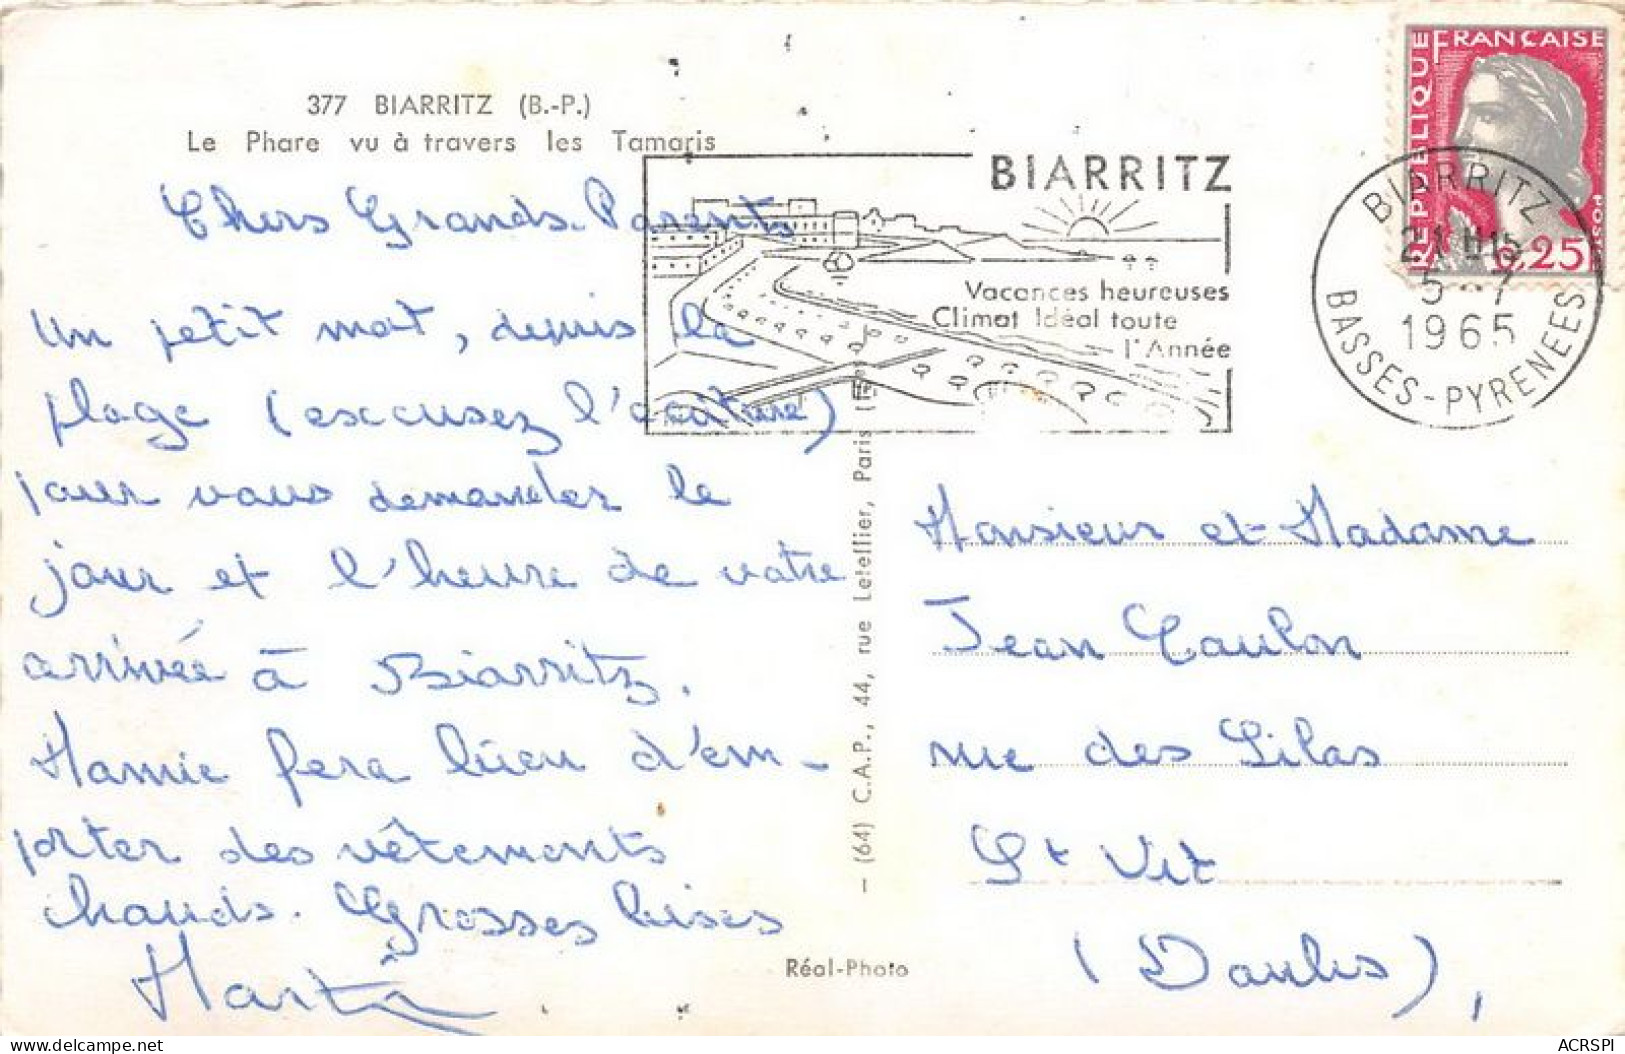 377 BIARRITZ (B.-P.)
Le Phare vu à travers les Tamaris
Chers Grands-Parents
Un petit mot, depuis la
plage (excusez l'écriture)
pour vous demander le
jour et l'heure de votre
arrivée à Biarritz.
Mamie fera bien d'em-
porter des vêtements
chauds. Grosses bises
Martin
BIARRITZ
Vacances heureuses
Climat Idéal toute
l'Année
RÉPUBLIQUE FRANÇAISE
POSTES
0,25
BIARRITZ
5-7
1965
BASSES-PYRENEES
(64) C.A.P., 44, rue Letellier, Paris
Réal-Photo
Monsieur et Madame
Jean Coulon
rue des Lilas
St Vit
(Doubs),
ACRSPI